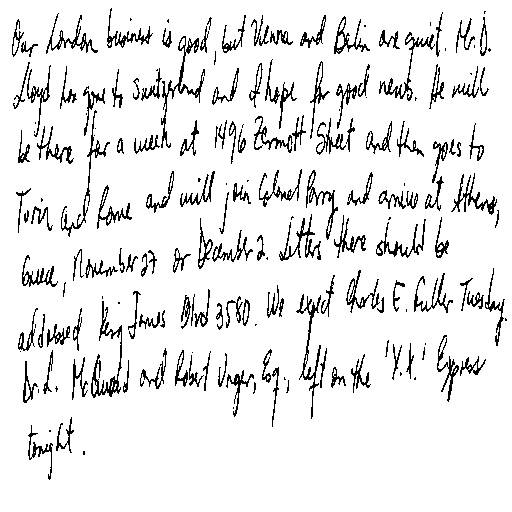 Our London business is good, but Vienna and Berlin are quiet. Mr. D.
Lloyd has gone to Switzerland and I hope for good news. He will
be there for a week at 1496 Zermott Street and then goes to
Turin and Rome and will join Colonel Parry and arrive at Athens,
Greece, November 27 or December 2. Letters there should be
addressed King James Blvd 3580. We expect Charles E. Fuller Tuesday.
Dr. L. McQuaid and Robert Unger, Esq., left on the 'Y.X.' Express
tonight.